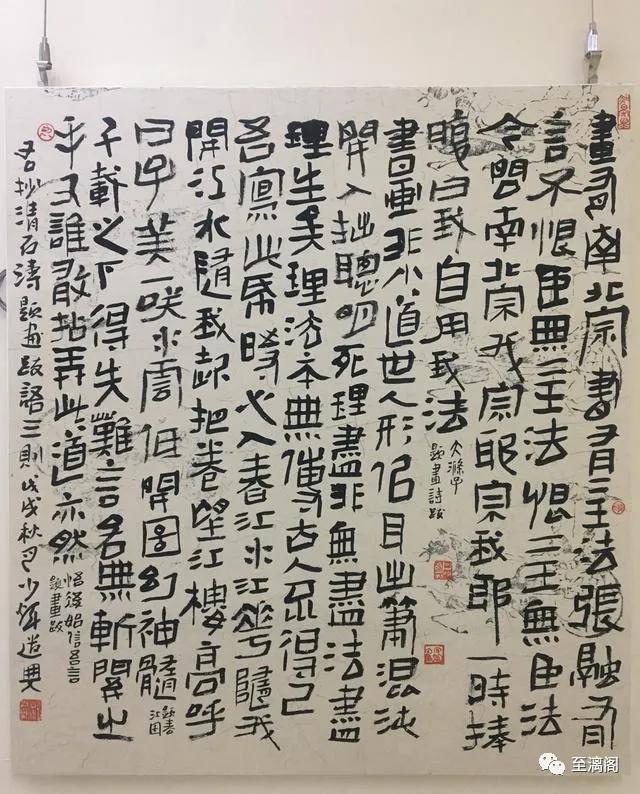 畫有南北宗書有二王法張融有
言不恨臣無二王法恨二王無臣法
今問南北宗我宗耶宗我耶一時捧
腹曰我自用我法
大滌子
題畫詩跋
書畫非小道世人形似耳出筆混沌
開入拙聰明死理盡非無盡法盡
理生矣理法本無傳古人不得已
吾寫此紙時心入春江水江花隨我
開江水隨我起把卷望江樓高呼
曰子美一咲水雲低開圖幻神髓
題春
江圖
千載之下得失難言名無斬關之
手又誰敢拈弄此道亦然
悟後始信吾言
題畫跋
右抄清石濤題畫跋語三則戊戌秋月少
至漓阁